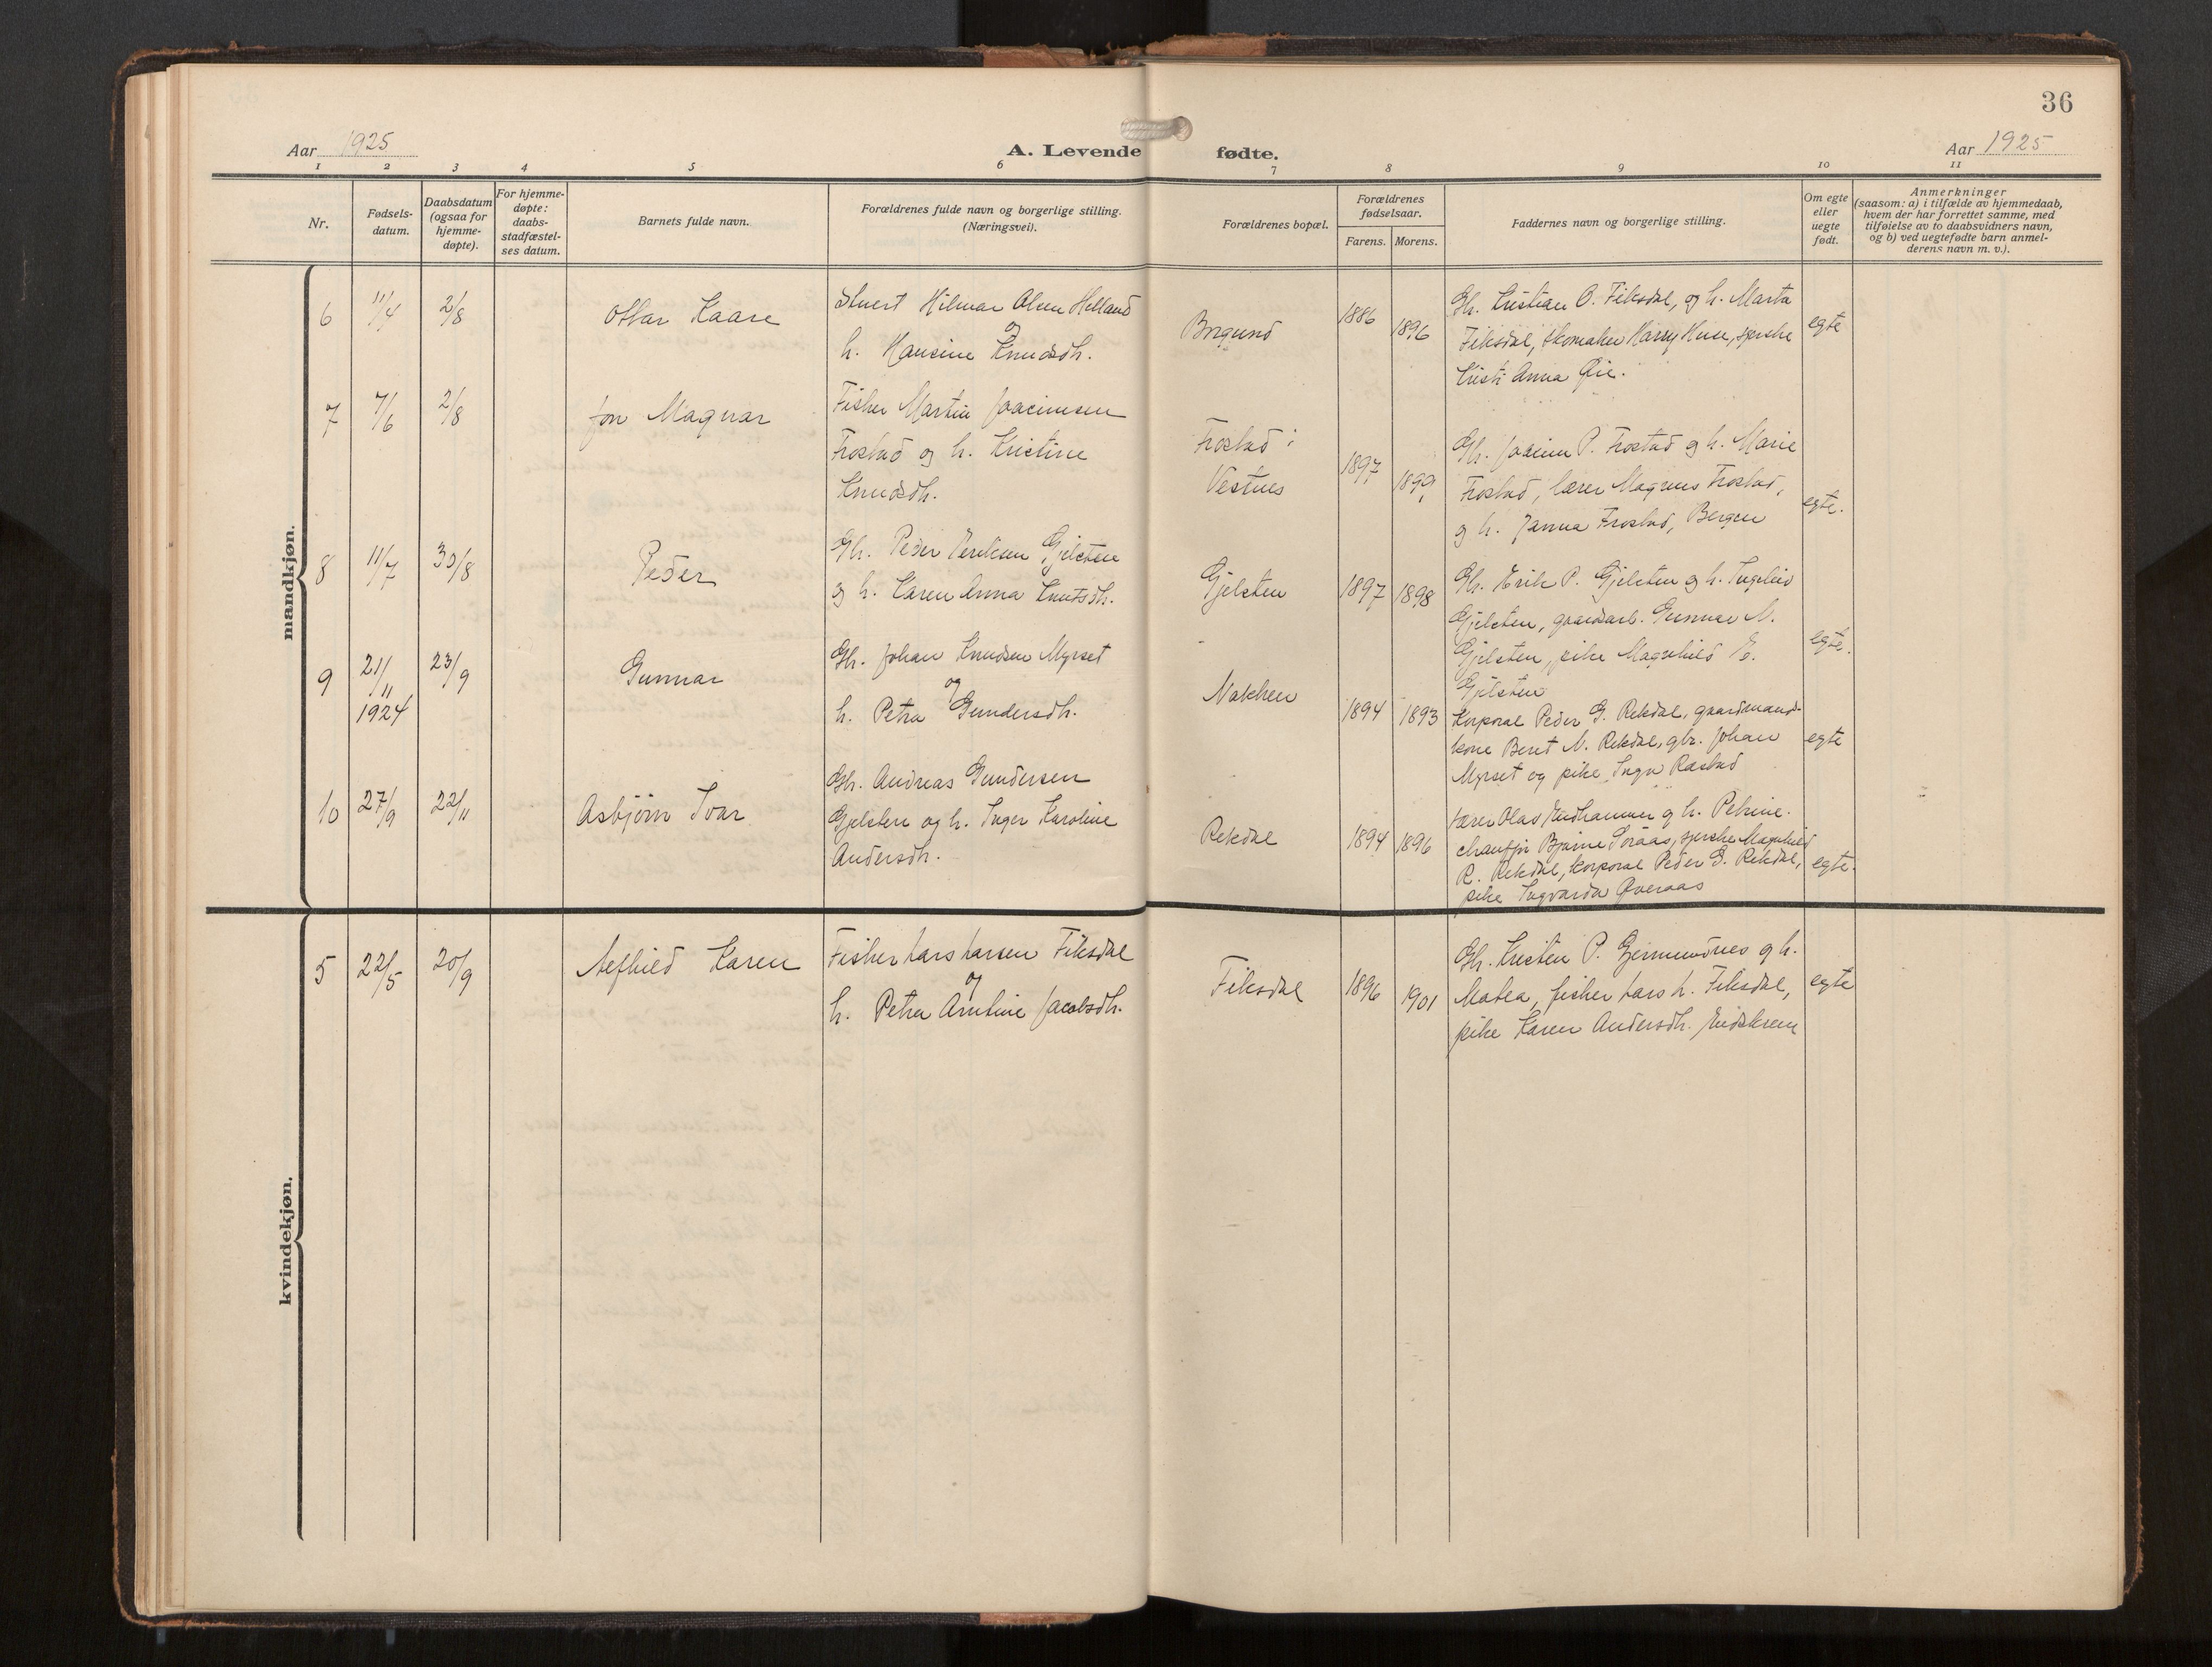 36
Aar 1925
A. Levende fødte.
Aar 1925
1 2 3 4 5 6 7 8 9 10 11
Nr.
Fødsels-
datum.
Daabsdatum
(ogsaa for
hjemme-
døpte).
For hjemme-
døpte:
daabs-
stadfæstel-
ses datum.
Barnets fulde navn.
Forældrenes fulde navn og borgerlige stilling.
(Næringsvei).
Forældrenes bopæl.
Forældrenes
fødselsaar.
Farens. Morens.
Faddernes navn og borgerlige stilling.
Om egte
eller
uegte
født.
Anmerkninger
(saasom: a) i tilfælde av hjemmedaab,
hvem der har forrettet samme, med
tilføielse av to daabsvidners navn,
og b) ved uegtefødte barn anmel-
derens navn m. v.).
mandkjøn.
6 11/4 2/8
Ottar Kaare
Hilmar Olsen Helland
og
h. Hansine Knudsdh.
Borgund
1886 1896
Gbr. Kristian O. Fiksdal, og h. Marta
Fiksdal, skomaker Harry Huse, syerske
Kristi Anna Øie.
egte
7 7/6 2/8
Jon Magnar
Fisker Martin Joacimsen
Frostad og h. Kristine
Knudsdh.
Frostad i
Vestnes
1897 1899
Gbr. Joacim P. Frostad og h. Marie
Frostad, lærer Magnus Frostad,
og h. Janna Frostad, Bergen
egte.
8 11/7 30/8
Peder
Gbr. Peder Eriksen Gjelsten
og h. Karen Anna Knutsdh.
Gjelsten
1897 1898
Gbr. Erik P. Gjelsten og h. Ingeleiv
Gjelsten, gaardsarb. Gunnar M.
Gjelsten, pike Magnhild E.
Gjelsten
egte.
9 21/11 1924 23/9
Gunnar
Gbr. Johan Knudsen Myrset
og
h. Petra Gundersdh.
Nakken
1894 1893
Korporal Peder G. Rekdal, gaardmands-
kone Beret N. Rekdal, gbr. Johan
Myrset og pike Inga Rastad
egte
10 27/9 22/11
Asbjørn Ivar
Gbr. Andreas Gundersen
Gjelsten og h. Inger Karoline
Andersdh.
Rekdal
1894 1896
Lærer Olav Eidhammer og h. Petrine.
chauffør Bjarne Soraas, syerske Magnhild
R. Rekdal, korporal Peder G. Rekdal,
pike Ingvarda Øveraas
egte.
kvindekjøn.
5 22/5 20/9
Alfhild Karen
Fisker Lars Larsen Fiksdal
og
h. Petra Arntine Jacobsdh.
Fiksdal
1896 1901
Gbr. Kristen P. Gjermundnes og h.
Matea, fisker Lars L. Fiksdal,
pike Karen Andersdh. Eidskrem
egte